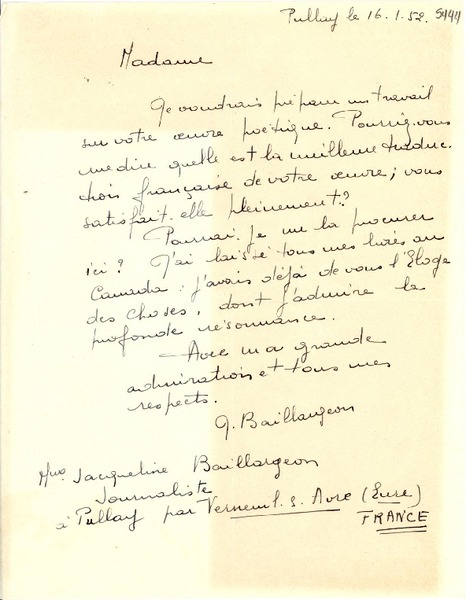 Pullay le 16.1.52. 5444
Madame
Je voudrais préparer un travail
sur votre œuvre poétique. Pourriez-vous
me dire quelle est la meilleure traduc-
tion française de votre œuvre; vous
satisfait-elle pleinement?
Pourrai-je me la procurer
ici? J'ai laissé tous mes livres au
Canada. J'avais déjà de vous l'Eloge
des choses, dont j'admire la
profonde résonnance.
Avec ma grande
admiration et tous mes
respects.
J. Baillargeon
Jacqueline Baillargeon
Journaliste
à Pullay par Verneuil s. Avre (Eure)
FRANCE